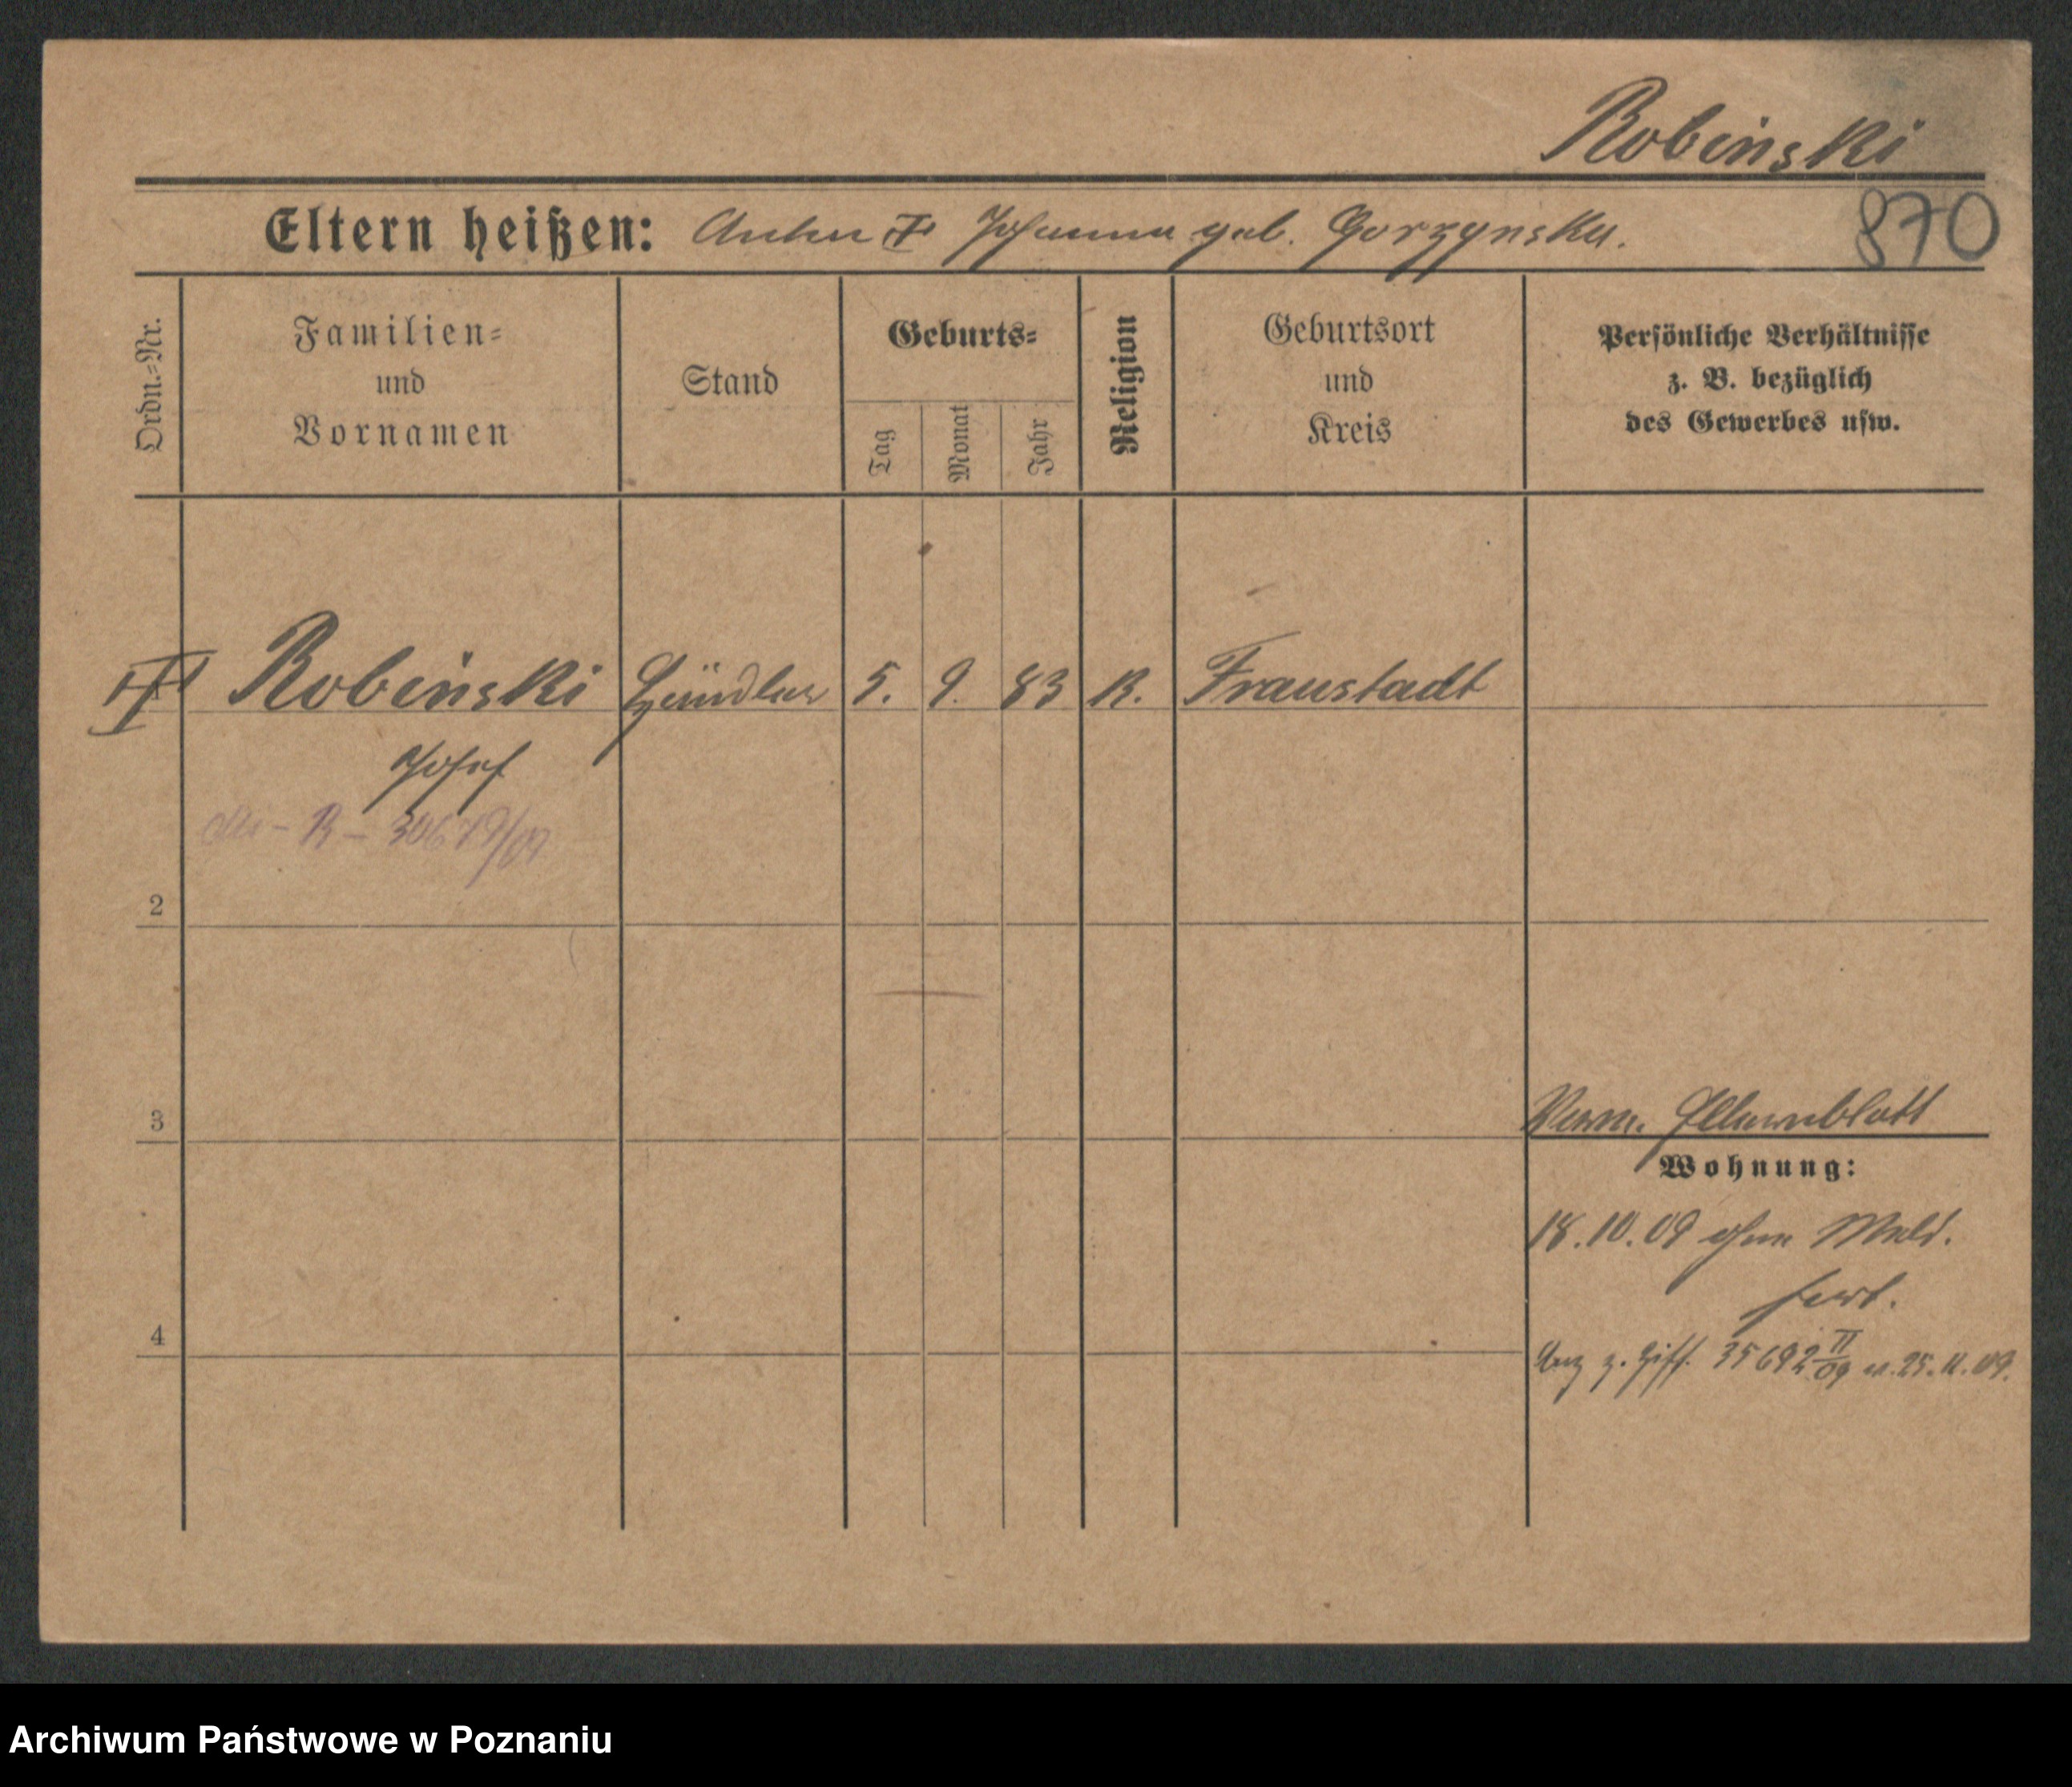 Robinski
Eltern heißen: Anton Johanna geb. Gorzynska.
870
Ordn.-Nr.
Familien-
und
Vornamen
Stand
Geburts-
Tag
Monat
Jahr
Religion
Geburtsort
und
Kreis
Persönliche Verhältnisse
z. B. bezüglich
des Gewerbes usw.
Robinski Händler 5. 9. 83 R. Fraustadt
Josef
2
3
Verm. Elternblatt
Wohnung:
18.10.09 ohne Meld.
fort.
4
z. 35692 II/09 v. 25.11.09.
Archiwum Państwowe w Poznaniu